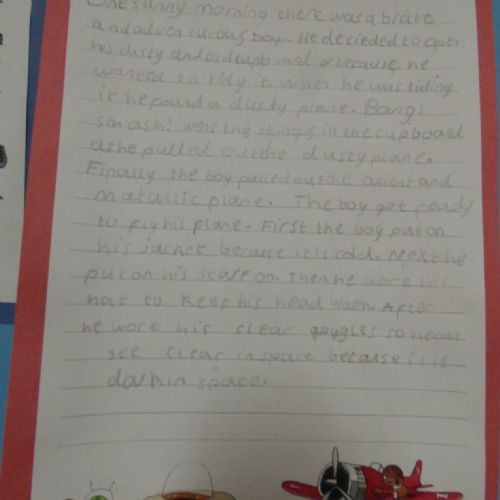 One sunny morning there was a brave
and adventurous boy. He decieded to open
his dusty and old cupboard because he
wanted to tidy it. When he was tiding
it he found a dusty plane. Bang!
smash! went the things in the cupboard
as he pulled out the dusty plane.
Finally the boy pulled out the acient and
matallic plane. The boy got ready
to fly his plane. First the boy put on
his jacket because it is cold. Next he
put on his scarf on. Then he wore his
hat to keep his head warm. After
he wore his clear gougles so he can
see clear in space because it is
dark in space.